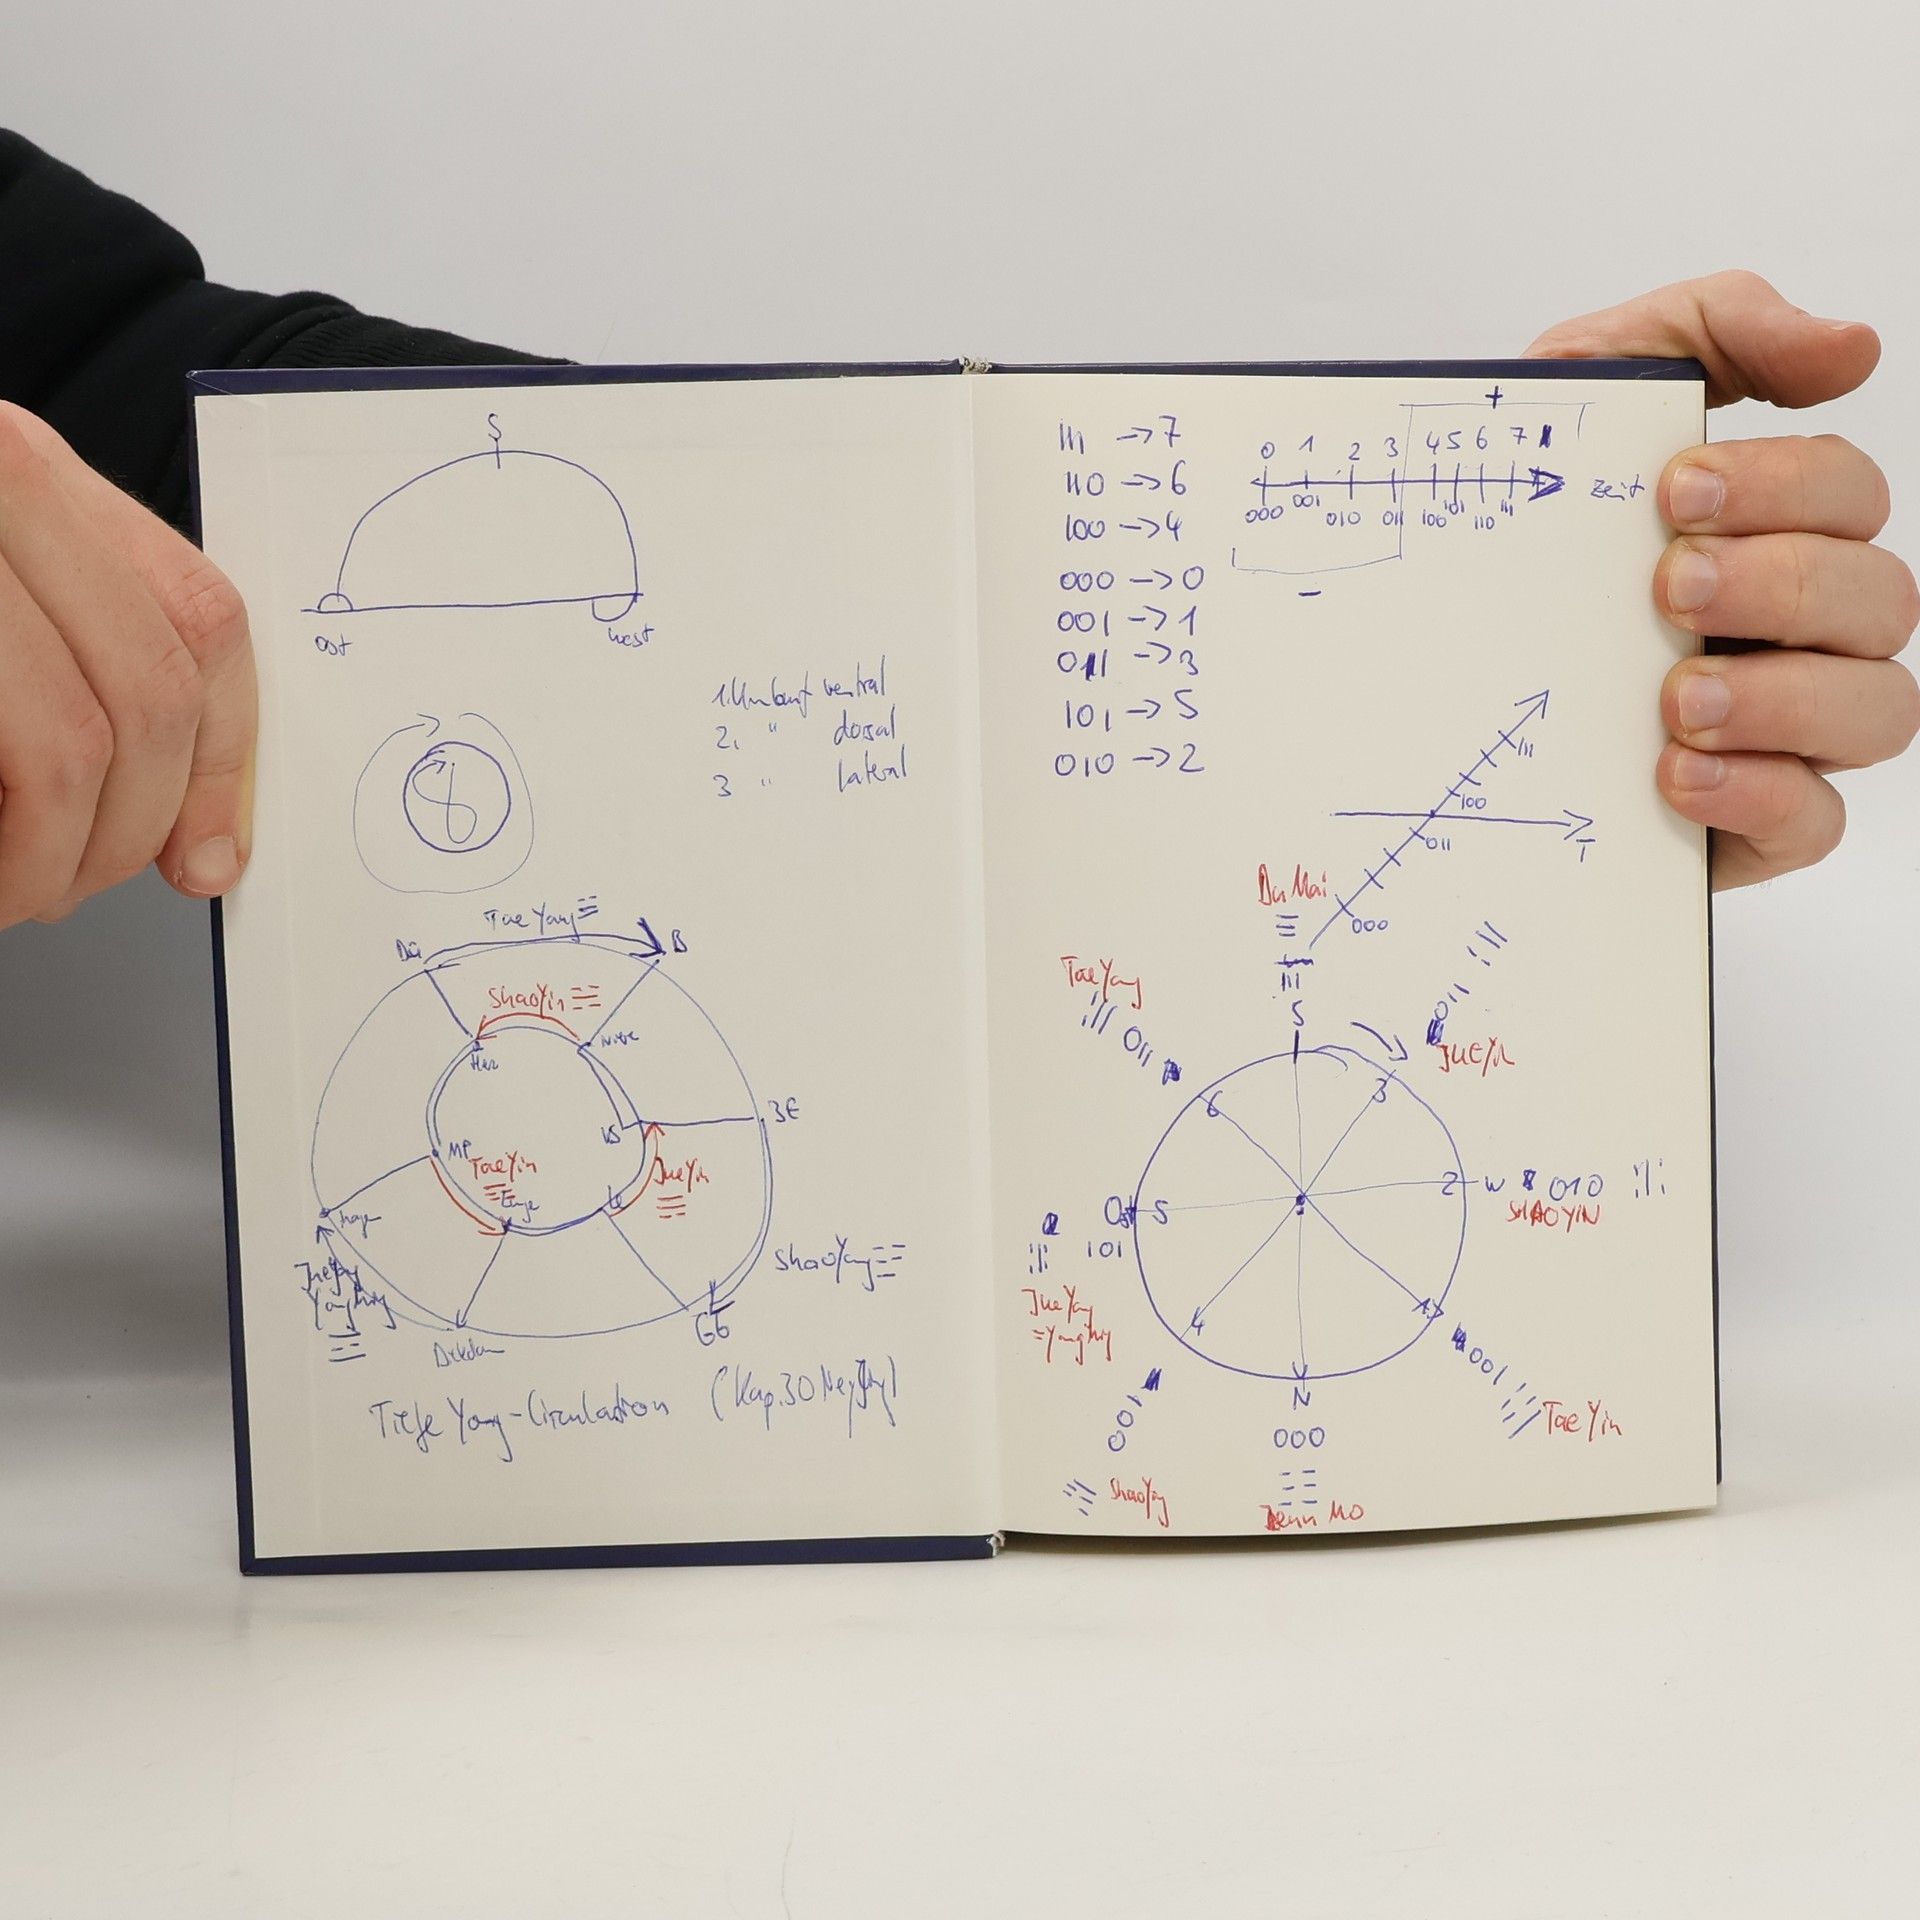 S
Ost
West
1. Umlauf ventral
2. " dorsal
3 " lateral
Tae Yang
Dü
B
ShaoYin
Niere
3E
KS
MP
TaeYin
Le
JueYin
Magen
Jue Yang
YangMing
ShaoYang
GB
Dickdarm
Tiefe Yang-Circulation (Kap. 30 NeyJing)
111 -> 7
110 -> 6
100 -> 4
000 -> 0
001 -> 1
011 -> 3
101 -> 5
010 -> 2
+
0 1 2 3 4 5 6 7
Zeit
000 001 010 011 100 101 110 111
-
111
100
011
T
000
Du Mai
111
S
TaeYang
011
011
JUEYin
6
3
Ost 5
2 W 010
SHAOYIN
101
Jue Yang
=YangMing
4
1
001
Tae Yin
N
000
100
ShaoYang
Jenn MO